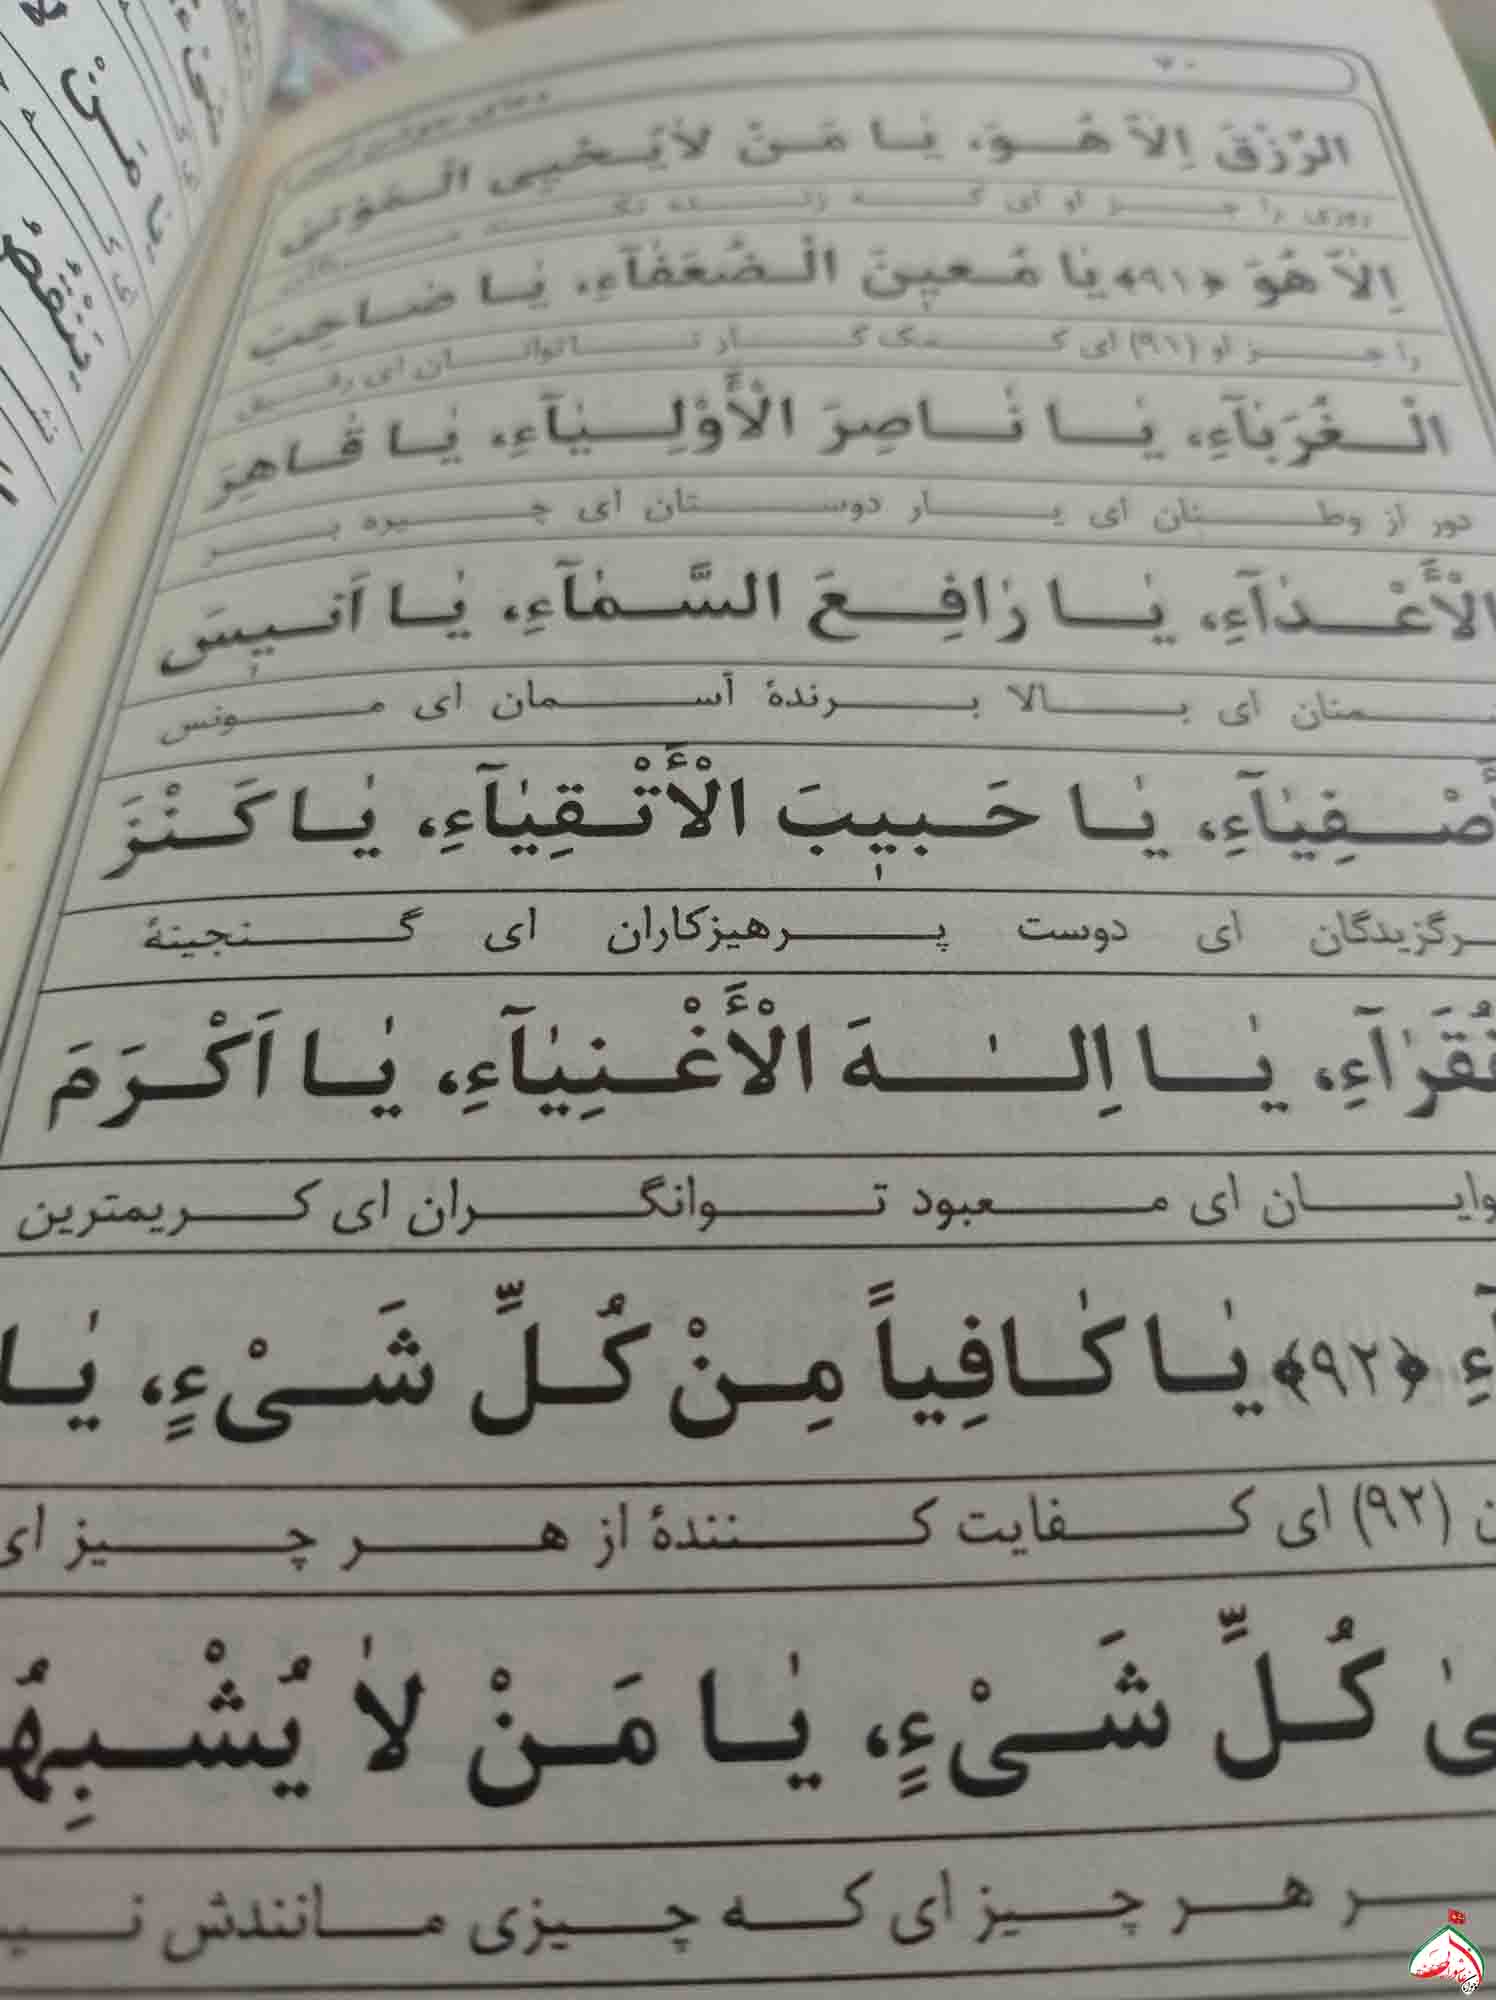 ۷۰
الرِّزْقَ اِلاّٰ هُوَ، يٰا مَنْ لاٰيُحْيِى الْمَوْتىٰ
روزی را جز او ای که زنده نکند
اِلاّٰ هُوَ ﴿۹۱﴾ يٰا مُعينَ الْضُّعَفٰآءِ، يٰا صٰاحِبَ
را جز او (۹۱) ای کمک کار ناتوانان ای رفیق
الْغُرَبٰآءِ، يٰا نٰاصِرَ الْأَوْلِيٰآءِ، يٰا قٰاهِرَ
دور از وطنان ای یار دوستان ای چیره بر
الْأَعْدٰآءِ، يٰا رٰافِعَ السَّمٰآءِ، يٰا اَنيسَ
ای بالا برندهٔ آسمان ای مونس
أَصْفِيٰآءِ، يٰا حَبيبَ الْأَتْقِيٰآءِ، يٰا كَنْزَ
برگزیدگان ای دوست پرهیزکاران ای گنجینهٔ
فُقَرٰآءِ، يٰا اِلٰهَ الْأَغْنِيٰآءِ، يٰا اَكْرَمَ
وایان ای معبود توانگران ای کریمترین
﴿۹۲﴾ يٰا كٰافِياً مِنْ كُلِّ شَىْءٍ، يٰا
(۹۲) ای کفایت کنندهٔ از هر چیز ای
كُلِّ شَىْءٍ، يٰا مَنْ لاٰ يُشْبِهُ
هر چیز ای که چیزی مانندش